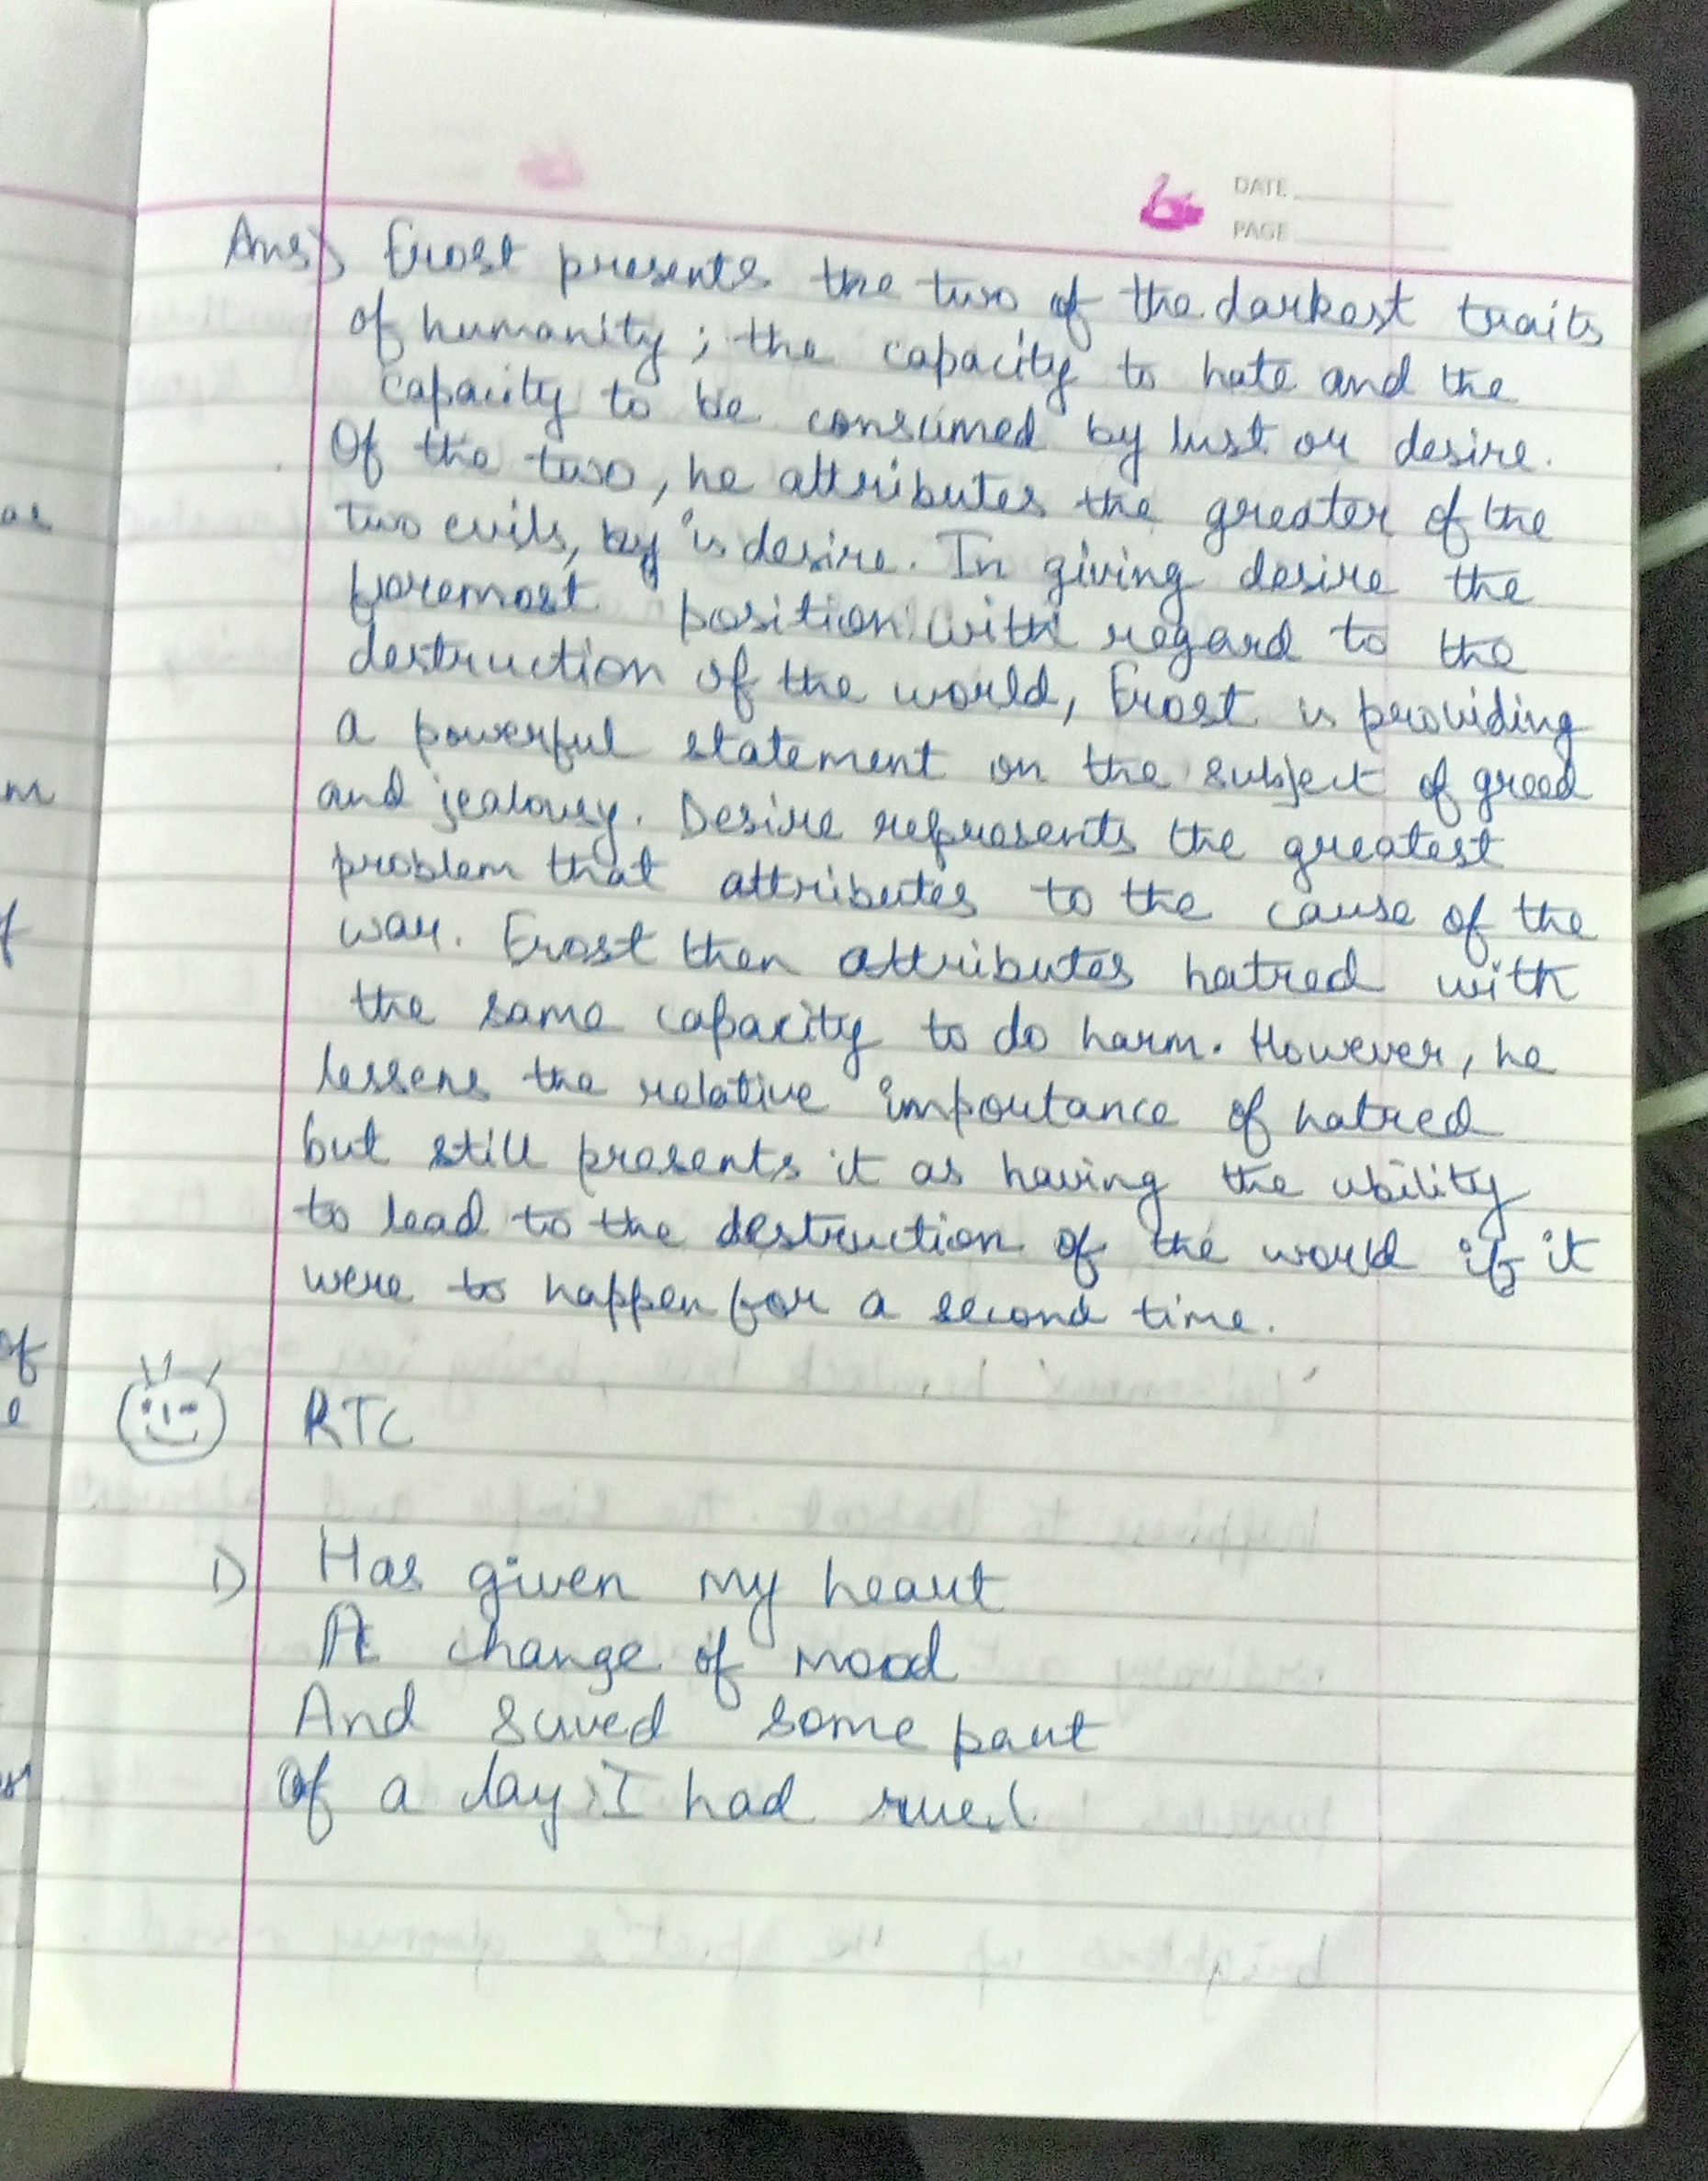 DATE
PAGE
Ans) Frost presents the two of the darkest traits
of humanity; the capacity to hate and the
capacity to be consumed by lust or desire.
Of the two, he attributes the greater of the
two evils, is desire. In giving desire the
foremost position with regard to the
destruction of the world, Frost is providing
a powerful statement on the subject of greed
and jealousy. Desire represents the greatest
problem that attributes to the cause of the
war. Frost then attributes hatred with
the same capacity to do harm. However, he
lessens the relative importance of hatred
but still presents it as having the ability
to lead to the destruction of the world if it
were to happen for a second time.
RTC
1) Has given my heart
A change of mood
And saved some part
Of a day I had rued.
as
m
f
of
e